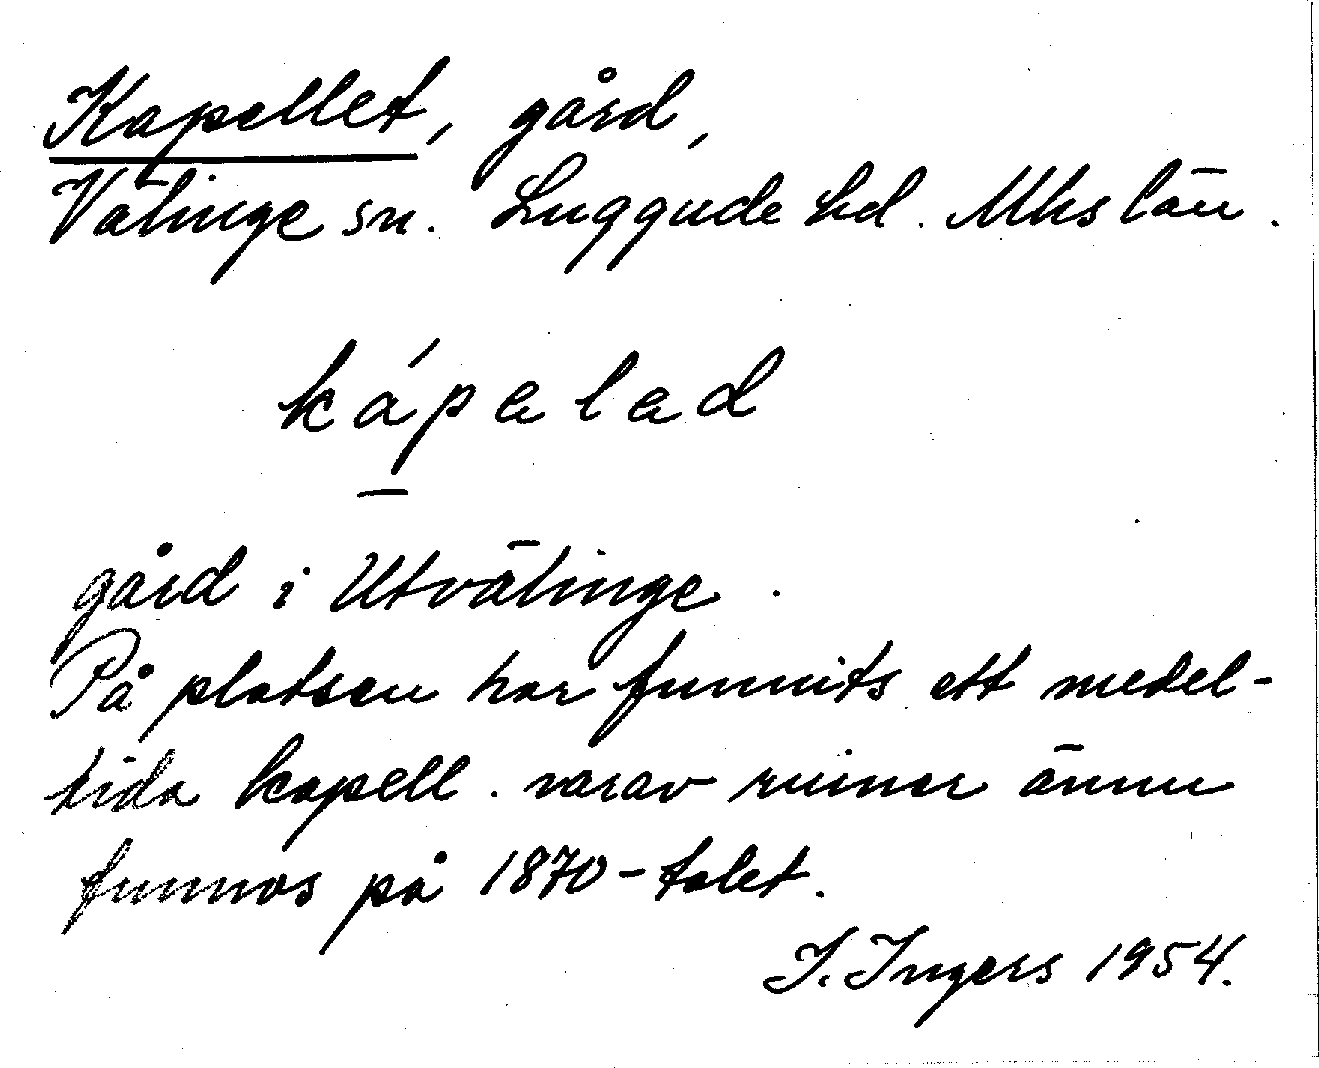 Kapellet, gård,
Välinge sn. Luggude hd. Mhs län.
kápelad
gård i Utvälinge.
På platsen har funnits ett medel-
tida kapell. varav ruiner ännu
funnos på 1870-talet.
I. Ingers 1954.